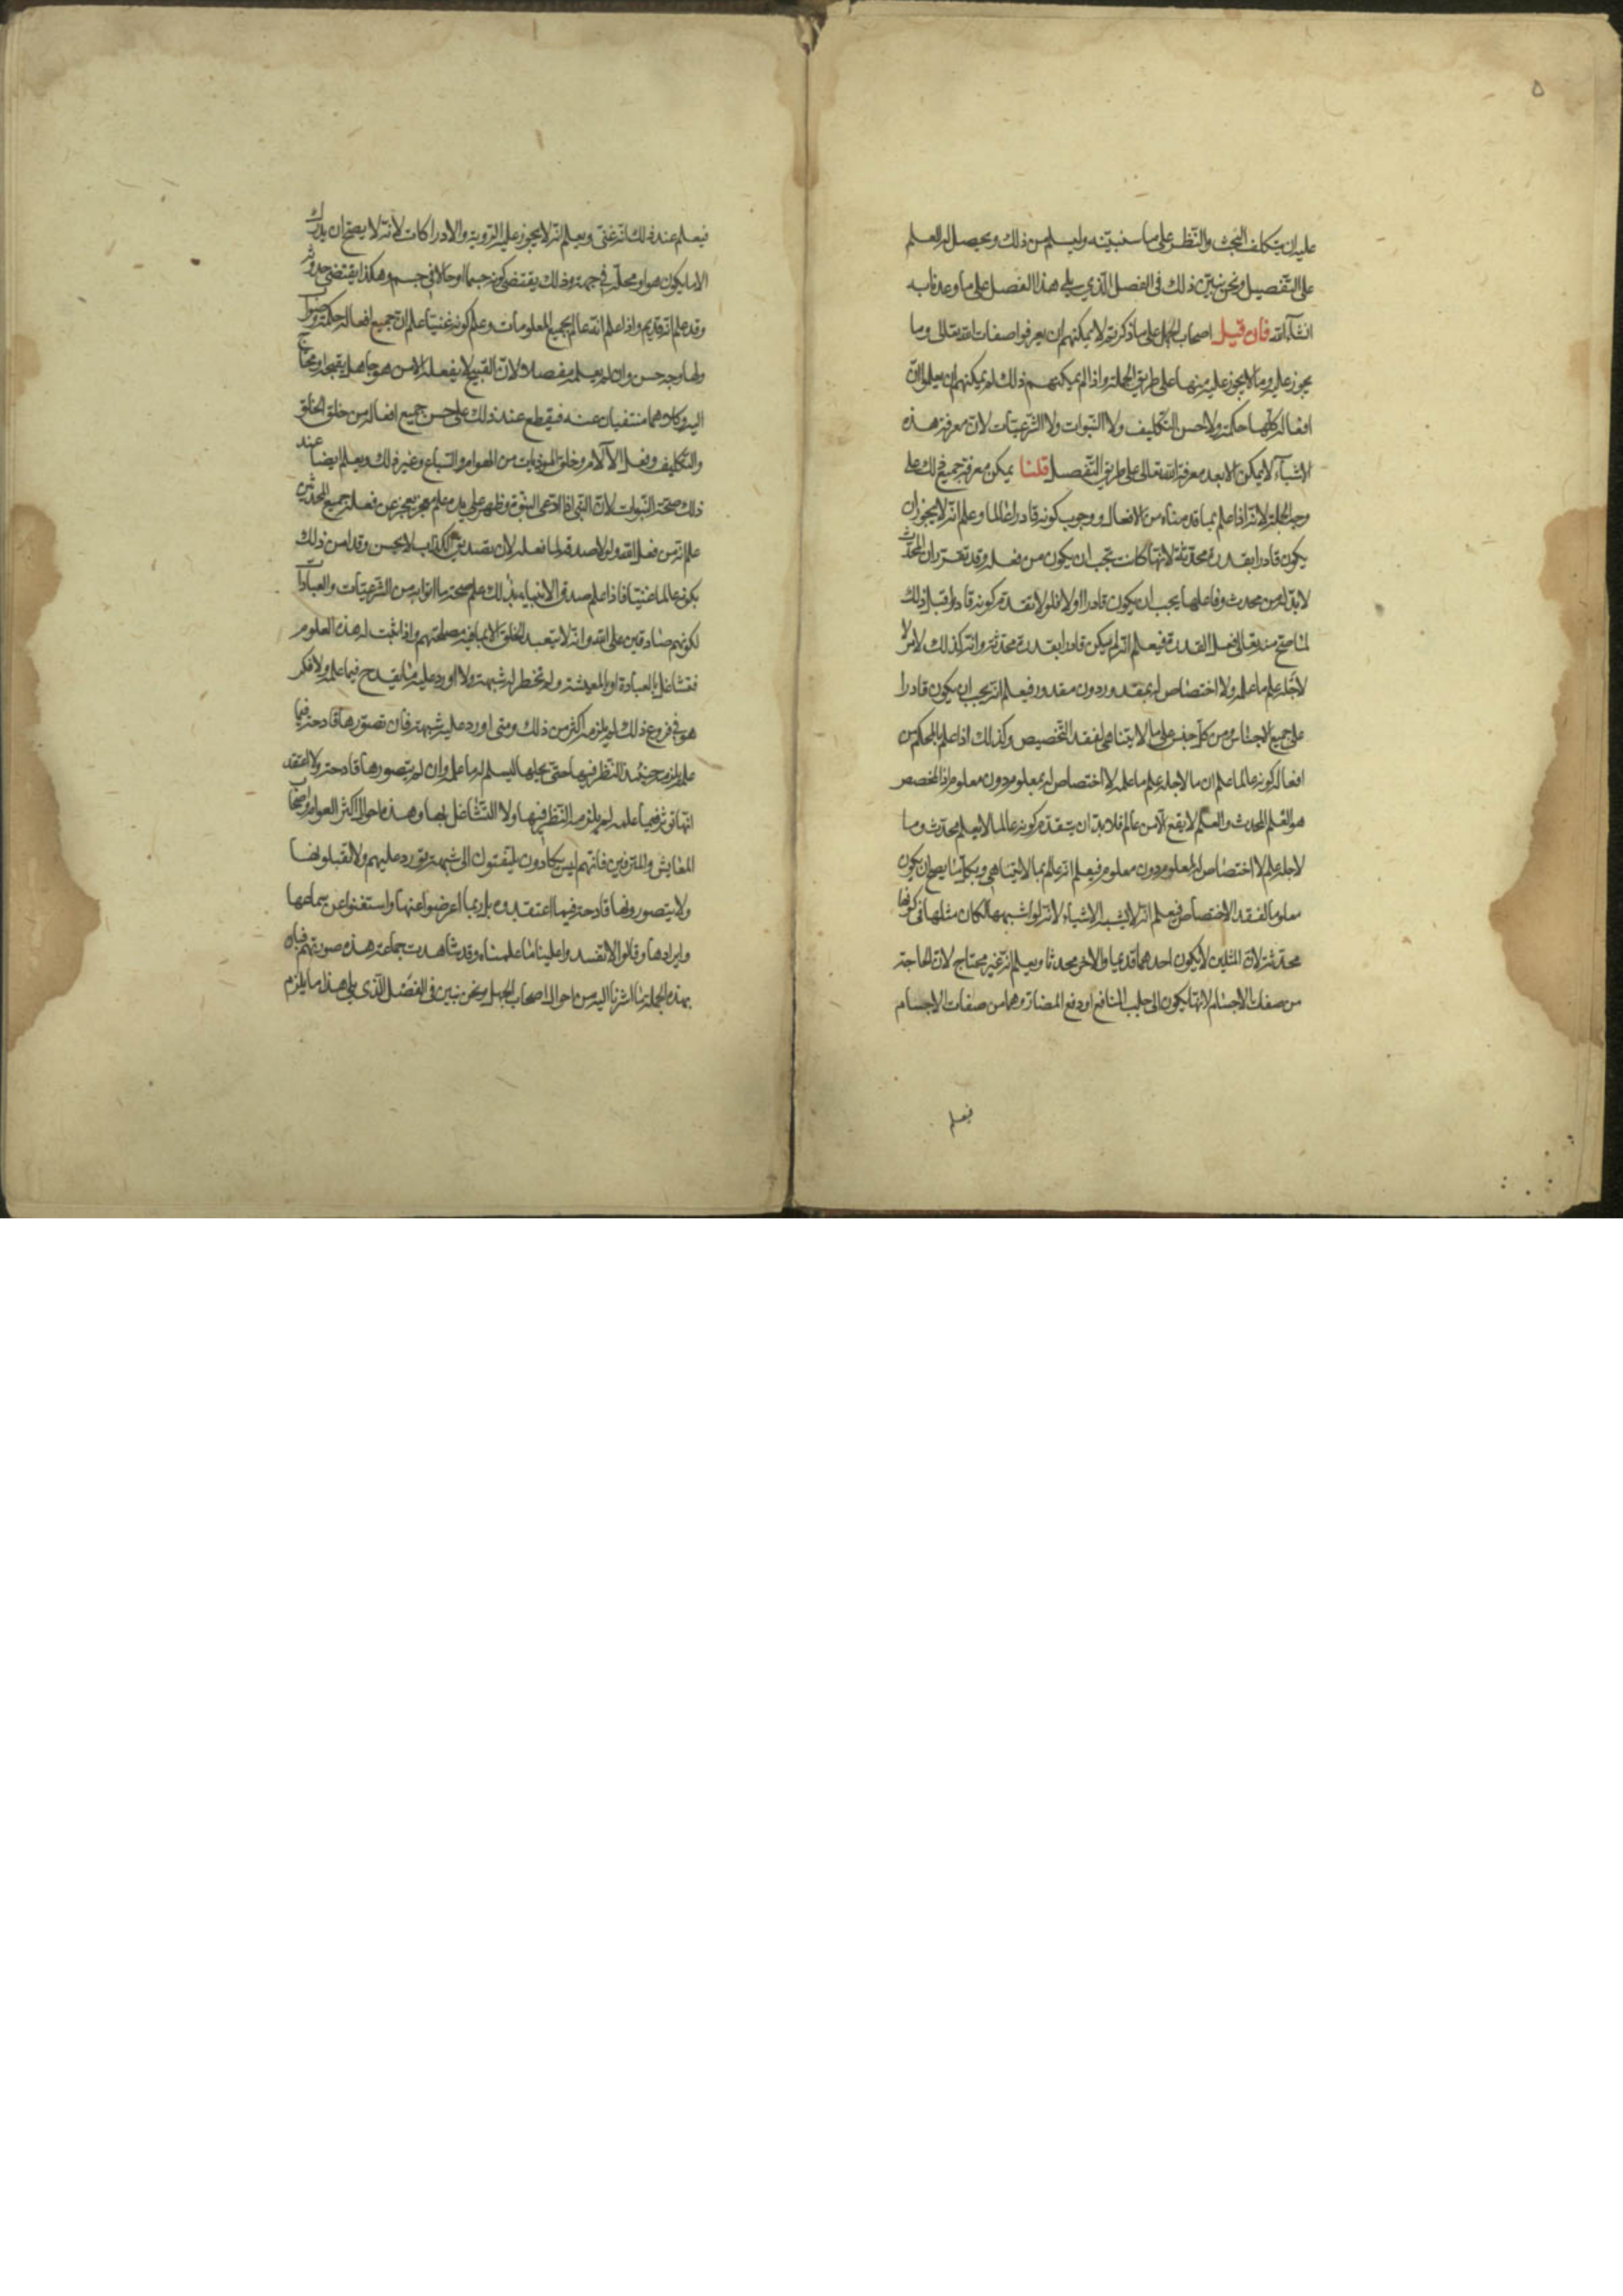 ٥
عليه ان يتكلف البحث والنظر على ما سنبينه وليسلم من ذلك ويحصل له العلم
على التفصيل ونحن نبين ذلك فى الفصل الذى يلى هذا الفصل على ما وعدنا به
انشآء الله فان قيل اصحاب الجمل على ما ذكرتم لا يمكنهم ان يعرفوا صفات الله تعالى وما
يجوز عليه وما لا يجوز عليه منها على طريق الجملة واذا لم يمكنهم ذلك لم يمكنهم ان يعلموا ان
افعاله كلها حكمة ولا حسن التكليف ولا النبوات ولا الشرعيات لان معرفة هذه
الاشيآء لا يمكن الا بعد معرفة الله تعالى على طريق التفصيل قلنا يمكن معرفة جميع ذلك على
وجه الجملة لانه اذا علم بما قدمناه من الافعال ووجوب كونه قادرا عالما وعلم انه لا يجوز ان
يكون قادرا بقدرة محدثة لانها كانت تجب ان يكون من فعله وقد تقرر ان المحدث
لا بد له من محدث وفاعلها يجب ان يكون قادرا اولا فلولا تقدم كونه قادرا قبل ذلك
لما صح منه تعالى فعل القدرة فيعلم انه لم يكن قادرا بقدرة محدثة وانه كذلك لامر لا
لاجله علم ما علمه ولا اختصاص له بمقدور دون مقدور فيعلم انه يجب ان يكون قادرا
على جميع الاجناس ومن كل جنس على ما لا يتناهى لفقد التخصيص وكذلك اذا علم بالمحكم من
افعاله كونه عالما علم ان ما لاجله علم ما علمه لا اختصاص له بمعلوم دون معلوم اذ المخصص
هو العلم المحدث والعلم لا يقع الا من عالم فلا بد ان يتقدم كونه عالما لا بعلم محدث وما
لاجله علم لا اختصاص له بمعلوم دون معلوم فيعلم انه عالم بما لا يتناهى وبكل ما يصح ان يكون
معلوما لفقد الاختصاص فيعلم انه لا يشبه الاشياء لانه لو اشبهها لكان مثلها فى كونها
محدثة لان المثلين لا يكون احدهما قديما والاخر محدثا ويعلم انه غير محتاج لان الحاجة
من صفات الاجسام لانها يكون الى جلب المنافع او دفع المضار وهما من صفات الاجسام
فيعلم
فيعلم عند ذلك انه غنى ويعلم انه لا يجوز عليه الروية والادراكات لانه لا يصح ان يدرك
الا ما يكون هو او محله فى جهة وذلك يقتضى كونه جسما او حالا فى جسم وهكذا يقتضى حدوثه
وقد علم انه قديم واذا علم انه عالم بجميع المعلومات وعلم كونه غنيا علم ان جميع افعاله حكمة وصواب
ولها وجه حسن وان لم يعلمه مفصلا لان القبيح لا يفعله الا من هو جاهل بقبحه او محتاج
اليه وكلاهما منتفيان عنه فيقطع عند ذلك على حسن جميع افعاله من خلق الخلق
والتكليف وفعل الآلام وخلق الموذيات من الهوام والسباع وغير ذلك ويعلم ايضا عند
ذلك صحة النبوات لان النبى اذا ادعى النبوة وظهر على يده علم معجز يعجز عن فعله جميع المحدثين
علم انه من فعل الله ولولا صدقه لما فعله لان تصديق الكذاب لا يحسن وقد امن ذلك
بكونه عالما غنيا فاذا علم صدق الانبياء بذلك علم صحة ما اتوا به من الشرعيات والعبادات
لكونهم صادقين على الله وانه لا يتعبد الخلق الا بما فيه مصلحتهم واذا ثبت له هذه العلوم
فتشاغل بالعبادة او بالمعيشة ولم تخطر له شبهة ولا اورد عليه ما يقدح فيما علمه ولا فكر
هو فى فروع ذلك لم يلزمه اكثر من ذلك ومتى اورد عليه شبهة فان تصورها قادحة فيما
علمه يلزمه حينئذ النظر فيها حتى يحلها ليسلم له ما علمه وان لم يتصورها قادحة ولا اعتقد
انها توثر فيما علمه لم يلزمه النظر فيها ولا التشاغل بها وهذه احوال اكثر العوام واصحاب
المعايش والمترفين فانهم ليس يكادون يلتفتون الى شبهة تورد عليهم ولا يقبلونها
ولا يتصورونها قادحة فيما اعتقدوه بل ربما اعرضوا عنها واستغنوا عن سماعها
وايرادها وقالوا لا تفسدوا علينا ما علمناه وقد شاهدت جماعة هذه صورتهم فبان
بهذه الجملة ما اشرنا اليه من احوال اصحاب الجمل ونحن نبين فى الفصل الذى يلى هذا ما يلزم